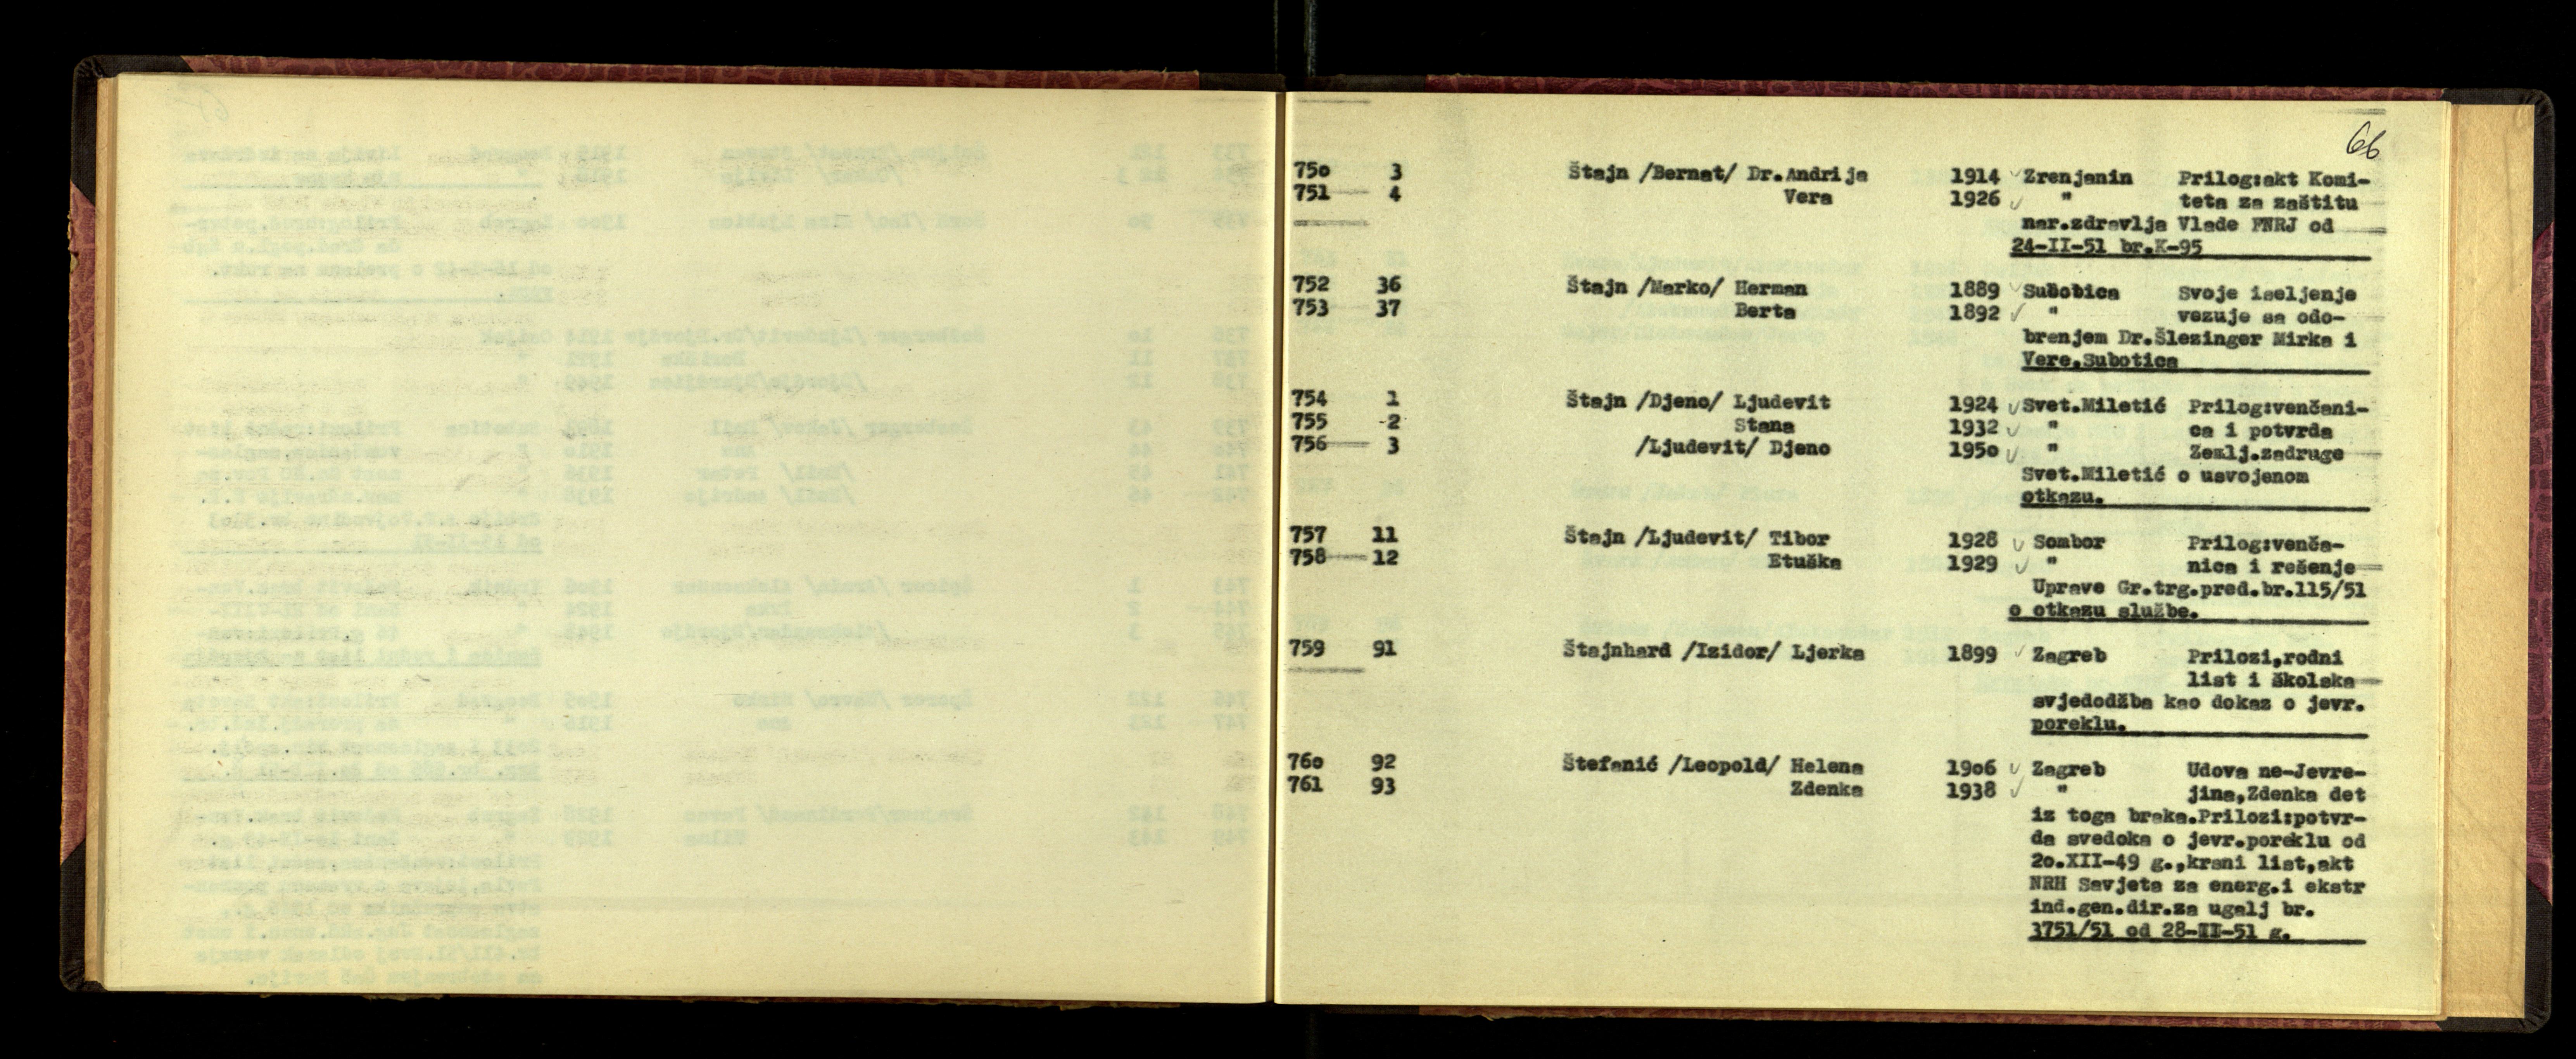 66
75o 3 Štajn /Bernat/ Dr.Andrija 1914 Zrenjanin Prilog:akt Komi-
751 4 Vera 1926 " teta za zaštitu
nar.zdravlja Vlade FNRJ od
24-II-51 br.K-95
752 36 Štajn /Marko/ Herman 1889 Subotica Svoje iseljenje
753 37 Berta 1892 " vezuje sa odo-
brenjem Dr.Šlezinger Mirka i
Vere.Subotica
754 1 Štajn /Djeno/ Ljudevit 1924 Svet.Miletić Prilog:venčani-
755 2 Stana 1932 " ca i potvrda
756 3 /Ljudevit/ Djeno 195o " Zemlj.zadruge
Svet.Miletić o usvojenom
otkazu.
757 11 Štajn /Ljudevit/ Tibor 1928 Sombor Prilog:venča-
758 12 Etuška 1929 " nica i rešenje
Uprave Gr.trg.pred.br.115/51
o otkazu službe.
759 91 Štajnhard /Izidor/ Ljerka 1899 Zagreb Prilozi,rodni
list i školska
svjedodžba kao dokaz o jevr.
poreklu.
76o 92 Štefanić /Leopold/ Helena 19o6 Zagreb Udova ne-Jevre-
761 93 Zdenka 1938 " jina,Zdenka det
iz toga braka.Prilozi:potvr-
da svedoka o jevr.poreklu od
2o.XII-49 g.,krsni list,akt
NRH Savjeta za energ.i ekstr
ind.gen.dir.za ugalj br.
3751/51 od 28-II-51 g.